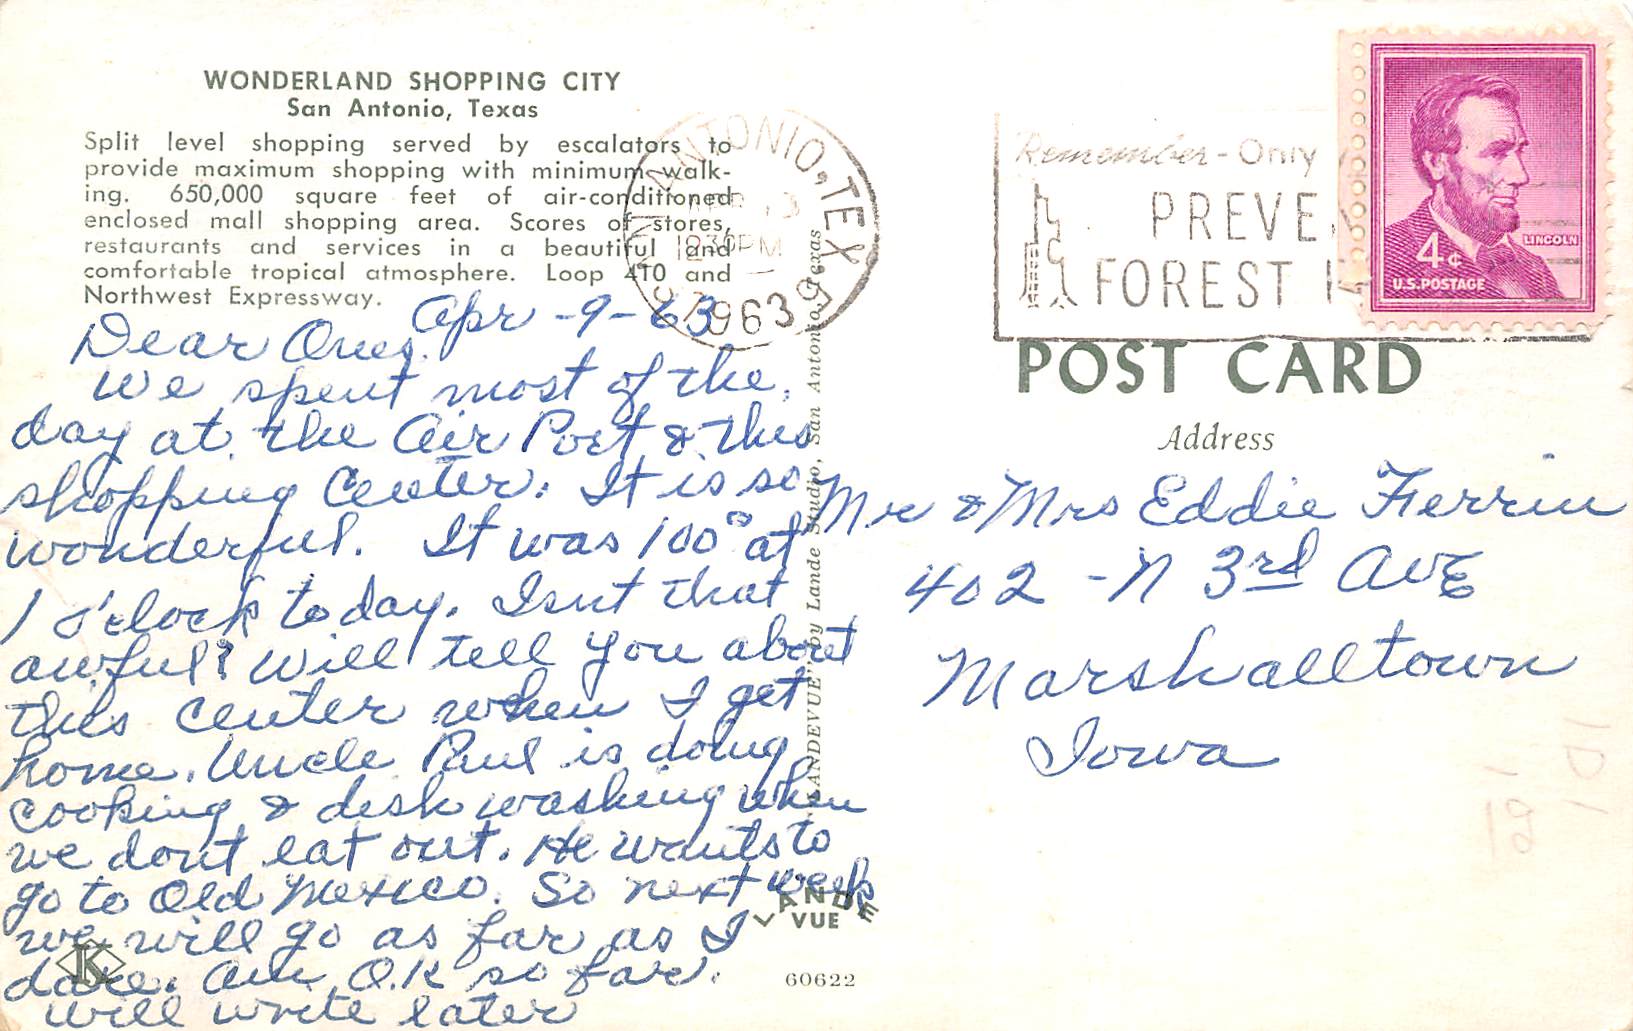 WONDERLAND SHOPPING CITY
San Antonio, Texas
Split level shopping served by escalators to
provide maximum shopping with minimum walk-
ing. 650,000 square feet of air-conditioned
enclosed mall shopping area. Scores of stores,
restaurants and services in a beautiful and
comfortable tropical atmosphere. Loop 410 and
Northwest Expressway.
Apr -9-63
Dear Ones.
We spent most of the
day at the Air Port & this
shopping Center. It is so
wonderful. It was 100° at
1 o'clock today. Isnt that
awful? Will tell you about
this center when I get
home. Uncle Paul is doing
cooking & dish washing when
we dont eat out. He wants to
go to Old Mexico. So next week
we will go as far as I
dare. Am O.K so far.
Will write later
K
LANDEVUE, by Lande Studio, San Antonio, Texas
LANDE
VUE
60622
SAN ANTONIO, TEX
12 30 PM
1963
Remember - Only
PREVE
FOREST
4¢
LINCOLN
U.S. POSTAGE
POST CARD
Address
Mr & Mrs Eddie Ferrin
402 - N 3rd Ave
Marshalltown
Iowa